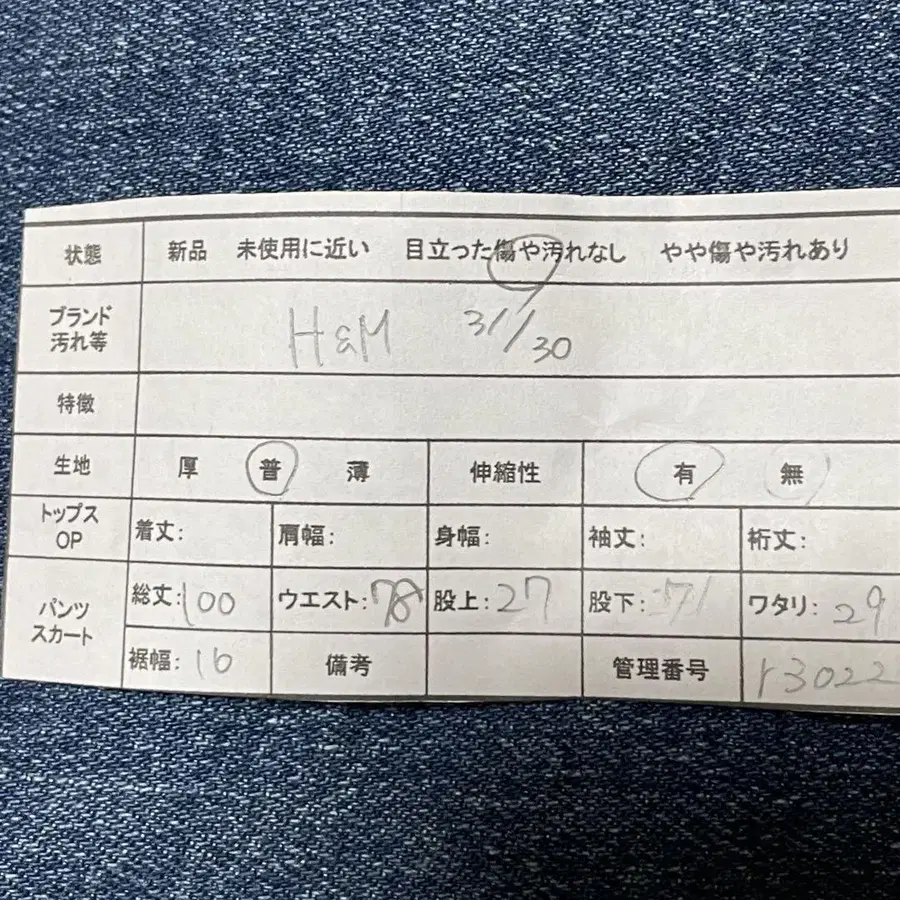 状態 新品 未使用に近い 目立った傷や汚れなし やや傷や汚れあり
ブランド
汚れ等
H&M 31/30
特徴
生地 厚 普 薄 伸縮性 有 無
トップス
OP
着丈: 肩幅: 身幅: 袖丈: 裄丈:
パンツ
スカート
総丈:100 ウエスト:78 股上:27 股下:71 ワタリ:29
裾幅:16 備考 管理番号 r3022